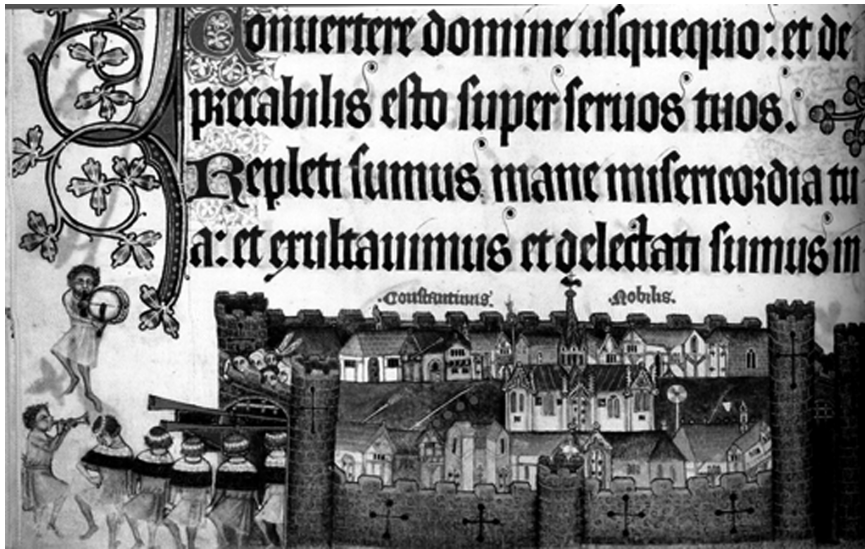 Conuertere domine usquequo: et de
precabilis esto super seruos tuos.
Repleti sumus mane misericordia tu
a: et exultauimus et delectati sumus in
.Constantinus. .Nobilis.